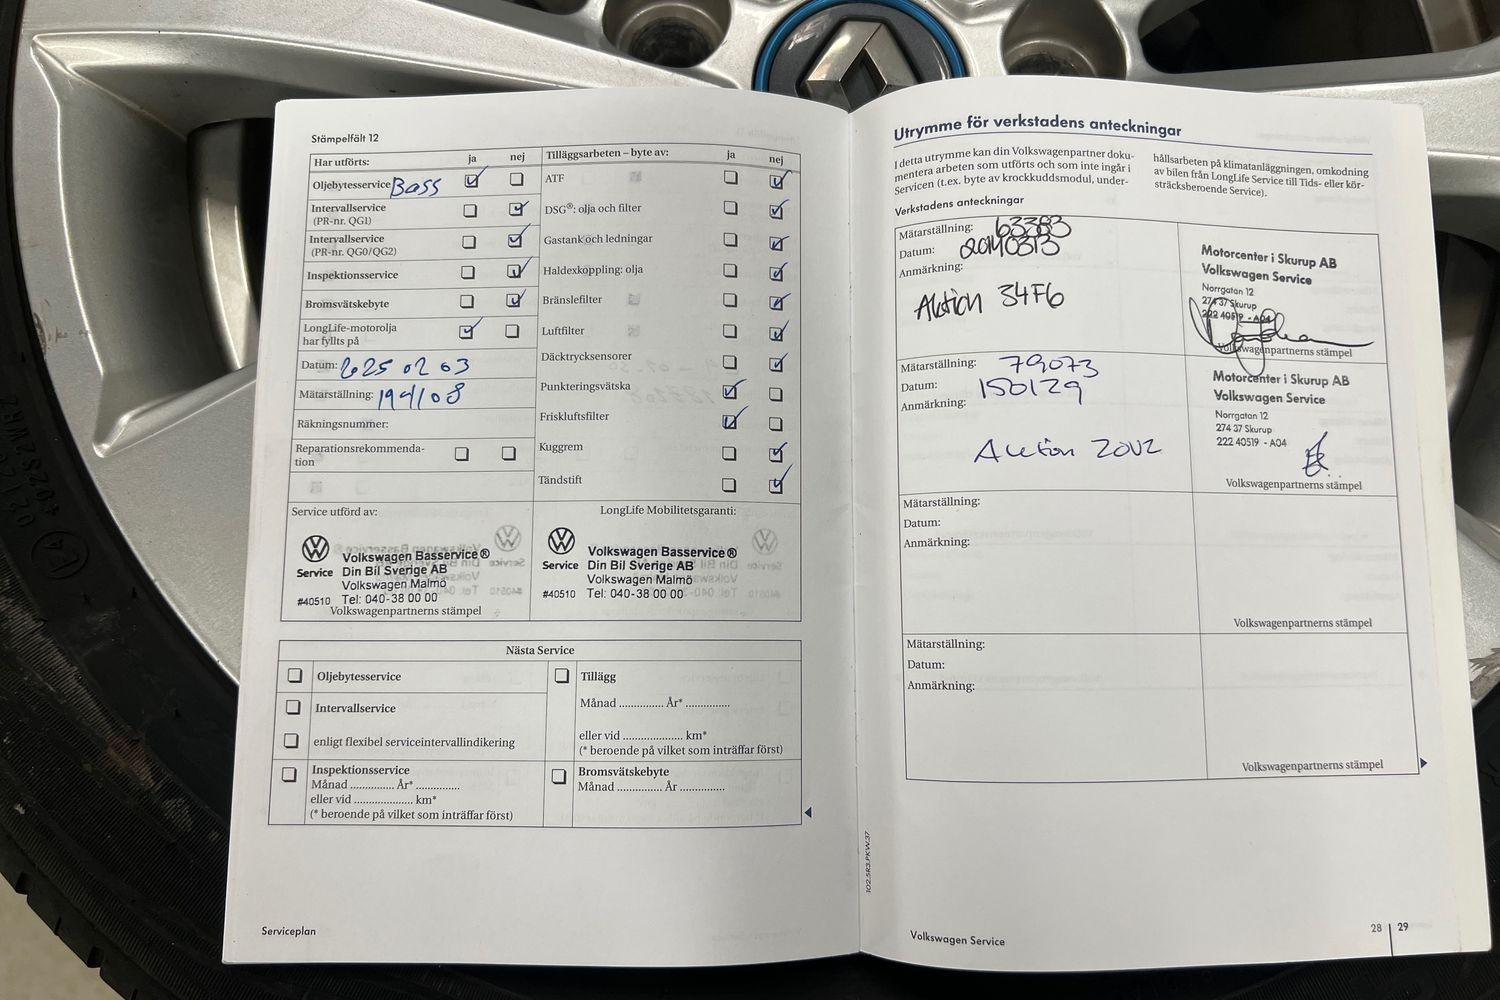 Stämpelfält 12
Har utförts: ja nej
Oljebytesservice Bass
Intervallservice
(PR-nr. QG1)
Intervallservice
(PR-nr. QG0/QG2)
Inspektionsservice
Bromsvätskebyte
LongLife-motorolja
har fyllts på
Datum: 2025 02 03
Mätarställning:
Räkningsnummer:
Reparationsrekommenda-
tion
Tilläggsarbeten – byte av: ja nej
ATF
DSG®: olja och filter
Gastank och ledningar
Haldexkoppling: olja
Bränslefilter
Luftfilter
Däcktrycksensorer
Punkteringsvätska
Friskluftsfilter
Kuggrem
Tändstift
Service utförd av:
Service
#40510
Volkswagen Basservice®
Din Bil Sverige AB
Volkswagen Malmö
Tel: 040-38 00 00
Volkswagenpartnerns stämpel
LongLife Mobilitetsgaranti:
Service
#40510
Volkswagen Basservice®
Din Bil Sverige AB
Volkswagen Malmö
Tel: 040-38 00 00
Nästa Service
Oljebytesservice
Intervallservice
enligt flexibel serviceintervallindikering
Inspektionsservice
Månad .............. År* ..............
eller vid ................... km*
(* beroende på vilket som inträffar först)
Tillägg
Månad .............. År* ..............
eller vid .................... km*
(* beroende på vilket som inträffar först)
Bromsvätskebyte
Månad .............. År ..............
Serviceplan
Utrymme för verkstadens anteckningar
I detta utrymme kan din Volkswagenpartner doku-
mentera arbeten som utförts och som inte ingår i
Servicen (t.ex. byte av krockkuddsmodul, under-
hållsarbeten på klimatanläggningen, omkodning
av bilen från LongLife Service till Tids- eller kör-
sträcksberoende Service).
Verkstadens anteckningar
Mätarställning: 63383
Datum: 20140313
Anmärkning:
Aktion 34F6
Motorcenter i Skurup AB
Volkswagen Service
Norrgatan 12
274 37 Skurup
222 40519 - A04
Volkswagenpartnerns stämpel
Mätarställning: 79073
Datum: 150129
Anmärkning:
Aktion 20V2
Motorcenter i Skurup AB
Volkswagen Service
Norrgatan 12
274 37 Skurup
222 40519 - A04
Volkswagenpartnerns stämpel
Mätarställning:
Datum:
Anmärkning:
Volkswagenpartnerns stämpel
Mätarställning:
Datum:
Anmärkning:
Volkswagenpartnerns stämpel
102.5R3.PKW.37
Volkswagen Service
28 29